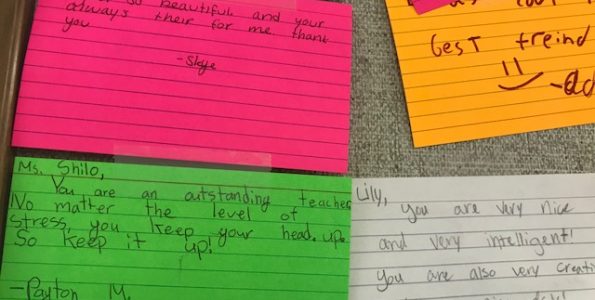 so beautiful and your
always their for me thank
you
-Skye
best treind
Ms. Shilo,
You are an outstanding teacher
No matter the level of
stress, you keep your head up.
So keep it up!
-Payton M.
Lily,
you are very nice
and very intelligent!
you are also very creati